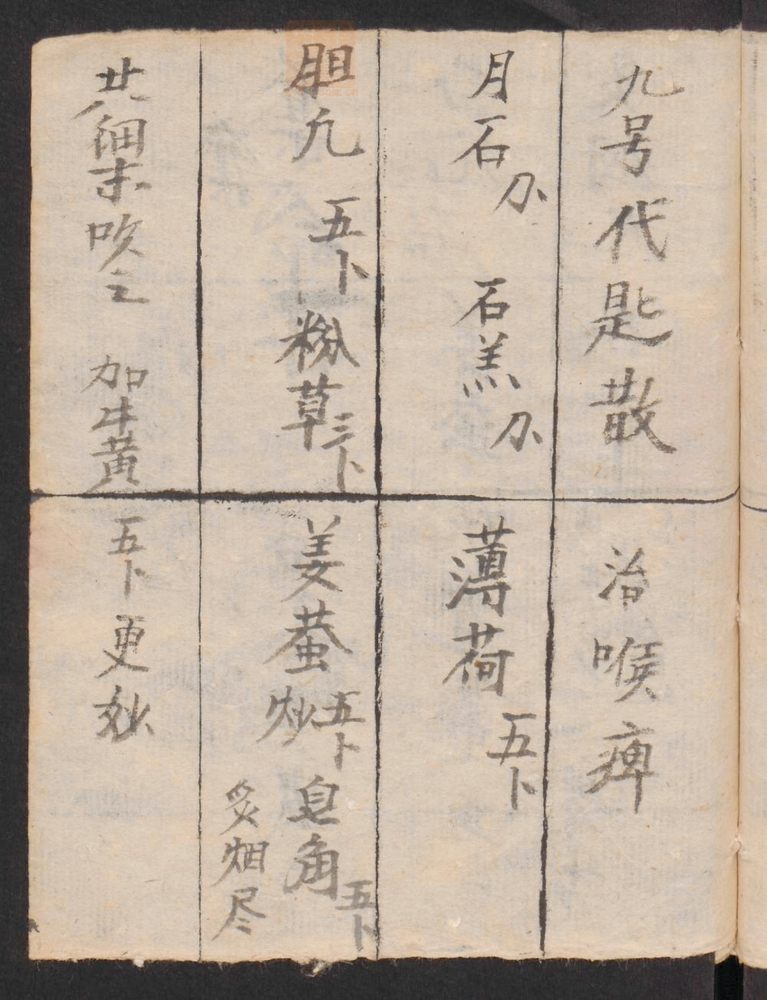 九号代匙散 治喉痺
月石 石羔 薄荷五卜
胆凡五卜 粉草三卜 姜蚕炒五卜 皂角五卜 炙烟尽
共細末吹之 加牛黄五卜更妙